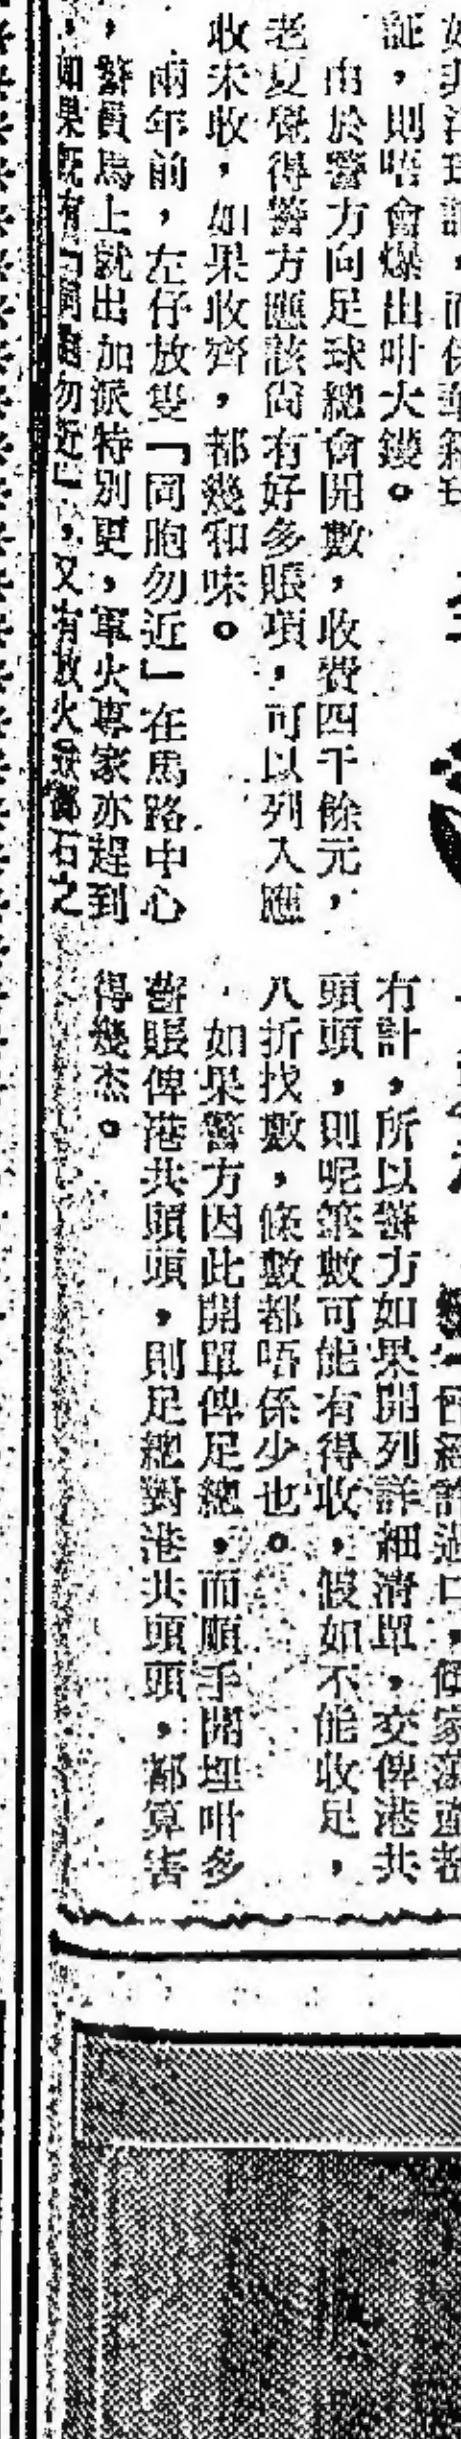 証，則唔會爆出咁大鑊。
由於警方向足球總會開數，收費四千餘元，
老夏覺得警方應該尙有好多賬項，可以列入應
收未收，如果收齊，都幾和味。
兩年前，左仔放隻「同胞勿近」在馬路中心
，警員馬上就出加派特別更，軍火專家亦趕到
，如果旣有「同胞勿近」，又有放火擲石之
冇計，所以警方如果開列詳細淸單，交俾港共
頭頭，則呢筆數可能有得收，假如不能收足，
八折找數，條數都唔係少也。
如果警方因此開單俾足總，而順手開埋咁多
舊賬俾港共頭頭，則足總對港共頭頭，都算害
得幾杰。